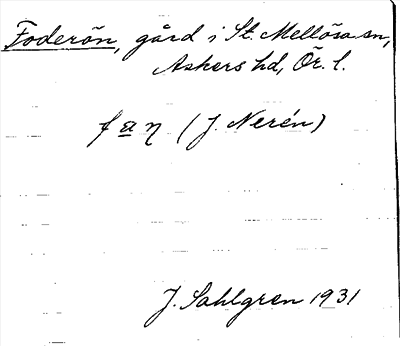 Foderön, gård i St. Mellösa sn,
Askers hd, Ör. l.
(J. Nerén)
J. Sahlgren 1931